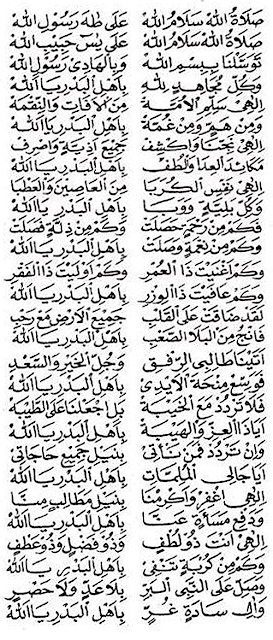 صَلَاةُ اللهْ سَلَامُ اللهْ عَلَى طٰهَ رَسُوْلِ اللهْ
صَلَاةُ اللهْ سَلَامُ اللهْ عَلَى يٰسٓ حَبِيْبِ اللهْ
تَوَسَّلْنَا بِبِسْمِ اللهْ وَبِالْهَادِيْ رَسُوْلِ اللهْ
وَكُلِّ مُجَاهِدٍ لِلّٰهْ بِاَهْلِ الْبَدْرِ يَا اللهْ
اِلٰهِيْ سَلِّمِ الْاُمَّةْ مِنَ الْاٰفَاتِ وَالنِّقْمَةْ
وَمِنْ هَمٍّ وَمِنْ غُمَّةْ بِاَهْلِ الْبَدْرِ يَا اللهْ
اِلٰهِيْ نَجِّنَا وَاكْشِفْ جَمِيْعَ اَذِيَّةٍ وَاصْرِفْ
مَكَائِدَ الْعِدَا وَالْطُفْ بِاَهْلِ الْبَدْرِ يَا اللهْ
اِلٰهِيْ نَفِّسِ الْكُرَبَا مِنَ الْعَاصِيْنَ وَالْعَطْبَا
وَكُلِّ بَلِيَّةٍ وَوَبَا بِاَهْلِ الْبَدْرِ يَا اللهْ
فَكَمْ مِنْ رَحْمَةٍ حَصَلَتْ وَكَمْ مِنْ ذِلَّةٍ فَصَلَتْ
وَكَمْ مِنْ نِعْمَةٍ وَصَلَتْ بِاَهْلِ الْبَدْرِ يَا اللهْ
وَكَمْ اَغْنَيْتَ ذَا الْعُمْرِ وَكَمْ اَوْلَيْتَ ذَا الْفَقْرِ
وَكَمْ عَافَيْتَ ذَا الْوِزْرِ بِاَهْلِ الْبَدْرِ يَا اللهْ
لَقَدْ ضَاقَتْ عَلَى الْقَلْبِ جَمِيْعُ الْاَرْضِ مَعْ رَحْبِ
فَانْجِ مِنَ الْبَلَا الصَّعْبِ بِاَهْلِ الْبَدْرِ يَا اللهْ
اَتَيْنَا طَالِبِى الرِّفْقِ وَجُلِّ الْخَيْرِ وَالسَّعْدِ
فَوَسِّعْ مِنْحَةَ الْاَيْدِيْ بِاَهْلِ الْبَدْرِ يَا اللهْ
فَلَا تَرْدُدْ مَعَ الْخَيْبَةْ بَلِ اجْعَلْنَا عَلَى الطَّيْبَةْ
اَيَا ذَا الْعِزِّ وَالْهَيْبَةْ بِاَهْلِ الْبَدْرِ يَا اللهْ
وَاِنْ تَرْدُدْ فَمَنْ نَأْتِيْ بِنَيْلِ جَمِيْعِ حَاجَاتِيْ
اَيَا جَالِى الْمُلِمَّاتِ بِاَهْلِ الْبَدْرِ يَا اللهْ
اِلٰهِى اغْفِرْ وَاَكْرِمْنَا بِنَيْلِ مَطَالِبٍ مِنَّا
وَدَفْعِ مَسَاءَةٍ عَنَّا بِاَهْلِ الْبَدْرِ يَا اللهْ
اِلٰهِيْ اَنْتَ ذُوْ لُطْفٍ وَذُوْ فَضْلٍ وَذُوْ عَطْفٍ
وَكَمْ مِنْ كُرْبَةٍ تَنْفِيْ بِاَهْلِ الْبَدْرِ يَا اللهْ
وَصَلِّ عَلَى النَّبِى الْبَرِّ بِلَا عَدٍّ وَلَا حَصْرِ
وَاٰلِ سَادَةٍ غُرِّ بِاَهْلِ الْبَدْرِ يَا اللهْ